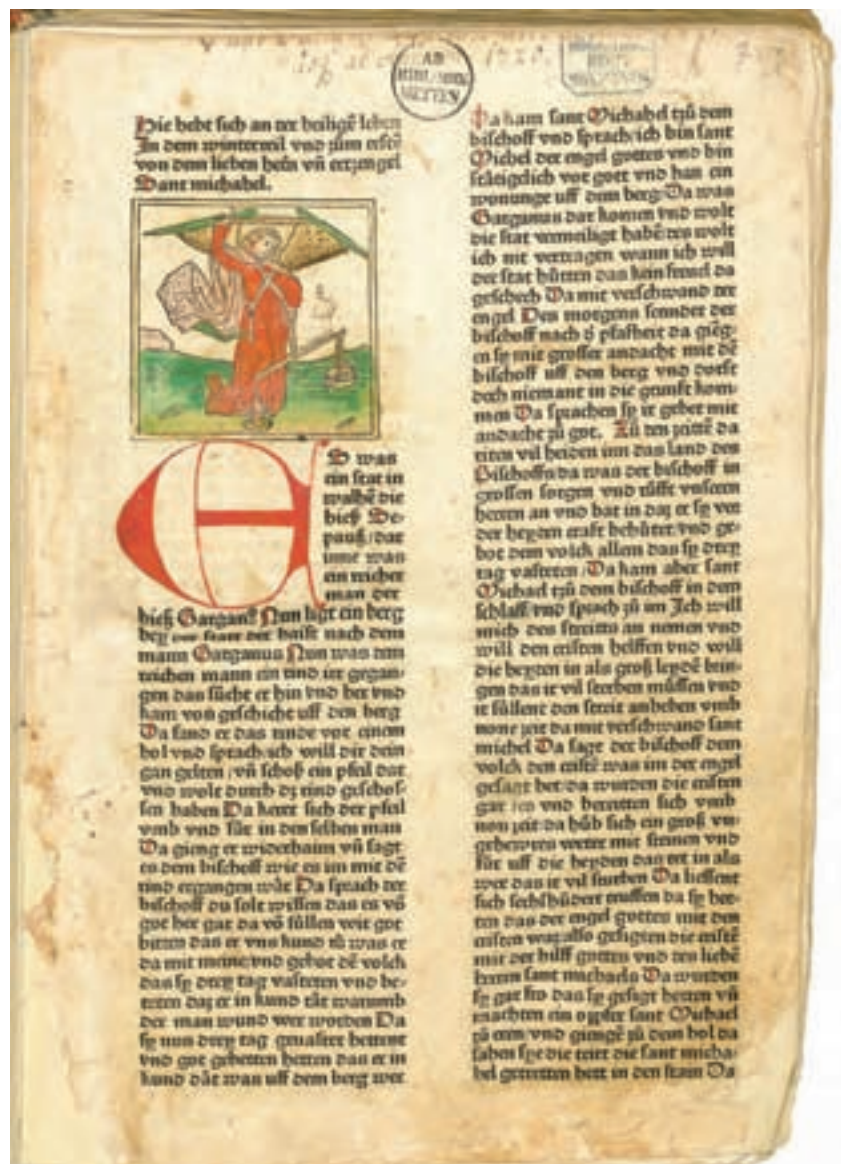 1720.
AB
METTEN
Hie hebt sich an der heiligẽ leben
In dem winterteil vnd zum erstẽ
von dem lieben herñ vñ ertzengel
Sant michahel.
ES was
ein stat in
walhẽ die
hieß Se-
pauß / dar
inne was
ein reicher
man der
hieß Gargan9 Nun ligt ein berg
bey der statt der haist nach dem
mann Garganus Nun was dem
reichen mann ein rind irr gegan-
gen das sůcht er hin vnd her vnd
kam von geschicht uff den berg
Da fand er das rinde vor einem
hol vnd sprach ich will dir dein
gan gelten / vñ schoß ein pfeil dar
vnd wolt durch dz rind geschos-
sen haben Da keret sich der pfeil
vmb vnd fůr in den selben man
Da gieng er widerhaim vñ sagt
es dem bischoff wie es im mit dẽ
rind ergangen wår Da sprach der
bischoff du solt wissen das es võ
got her gat da võ süllen wir got
bitten das er vns kund tů was er
da mit meine vnd gebot dẽ volck
das sy drey tag vasteten vnd be-
teten daz er in kund tåt warumb
der man wund wer worden Da
sy nun drey tag geuastet hettent
vnd got gebetten hetten das er in
kund dåt was uff dem berg wer
Da kam sant Michahel tzů dem
bischoff vnd sprach / ich bin sant
Michel der engel gottes vnd bin
ståtigclich vor gott vnd han ein
wonunge uff dem berg Da was
Garganus dar komen vnd wolt
die stat vermeiligt habẽ des wolt
ich nit vertragen wann ich will
der stat hütten das kein freuel da
geschech Da mit verschwand der
engel Des morgens sennder der
bischoff nach d' pfafheit da giẽg-
en sy mit grosser andacht mit dẽ
bischoff uff den berg vnd dorst
doch niemant in die grunft kom-
men Da sprachen sy ir gebet mit
andacht zů got. Zů den zeitẽ da
riten vil heiden inn das land des
Bischoffs da was der bischoff in
grossen sorgen vnd růfft vnseren
herren an vnd bat in daz er sy vor
der heyden craft behůtet vnd ge-
bot dem volck allem das sy drey
tag vasteten / Da kam aber sant
Michael tzů dem bischoff in dem
schlaff vnd sprach zů im Ich will
mich des streitts an nemen vnd
will den cristen helffen vnd will
die heyden in als groß leydẽ brin-
gen das ir vil sterben müssen vnd
ir süllent den streit anheben vmb
none zeit da mit verschwand sant
michel Da sagt der bischoff dem
volck den cristẽ was im der engel
gesagt het / da wurden die cristen
gar fro vnd bereitten sich vmb
non zeit da hůb sich ein groß vn-
gehewres wetter mit steinen vnd
fůr uff die heyden das ert in als
wee das ir vil sturben Da liessent
sich sechshũdert tauffen da sy hor-
ten das der engel gottes mit den
cristen was also gesigten die cristẽ
mit der hilff gottes vnd des liebẽ
herren sant michaels Da wurden
sy gar fro das sy gesigt hetten vñ
machten ein opffer sant Michael
zů eren / vnd giengẽ zů dem hol da
sahen sye die tritt die sant micha-
hel getretten hett in den stain Da